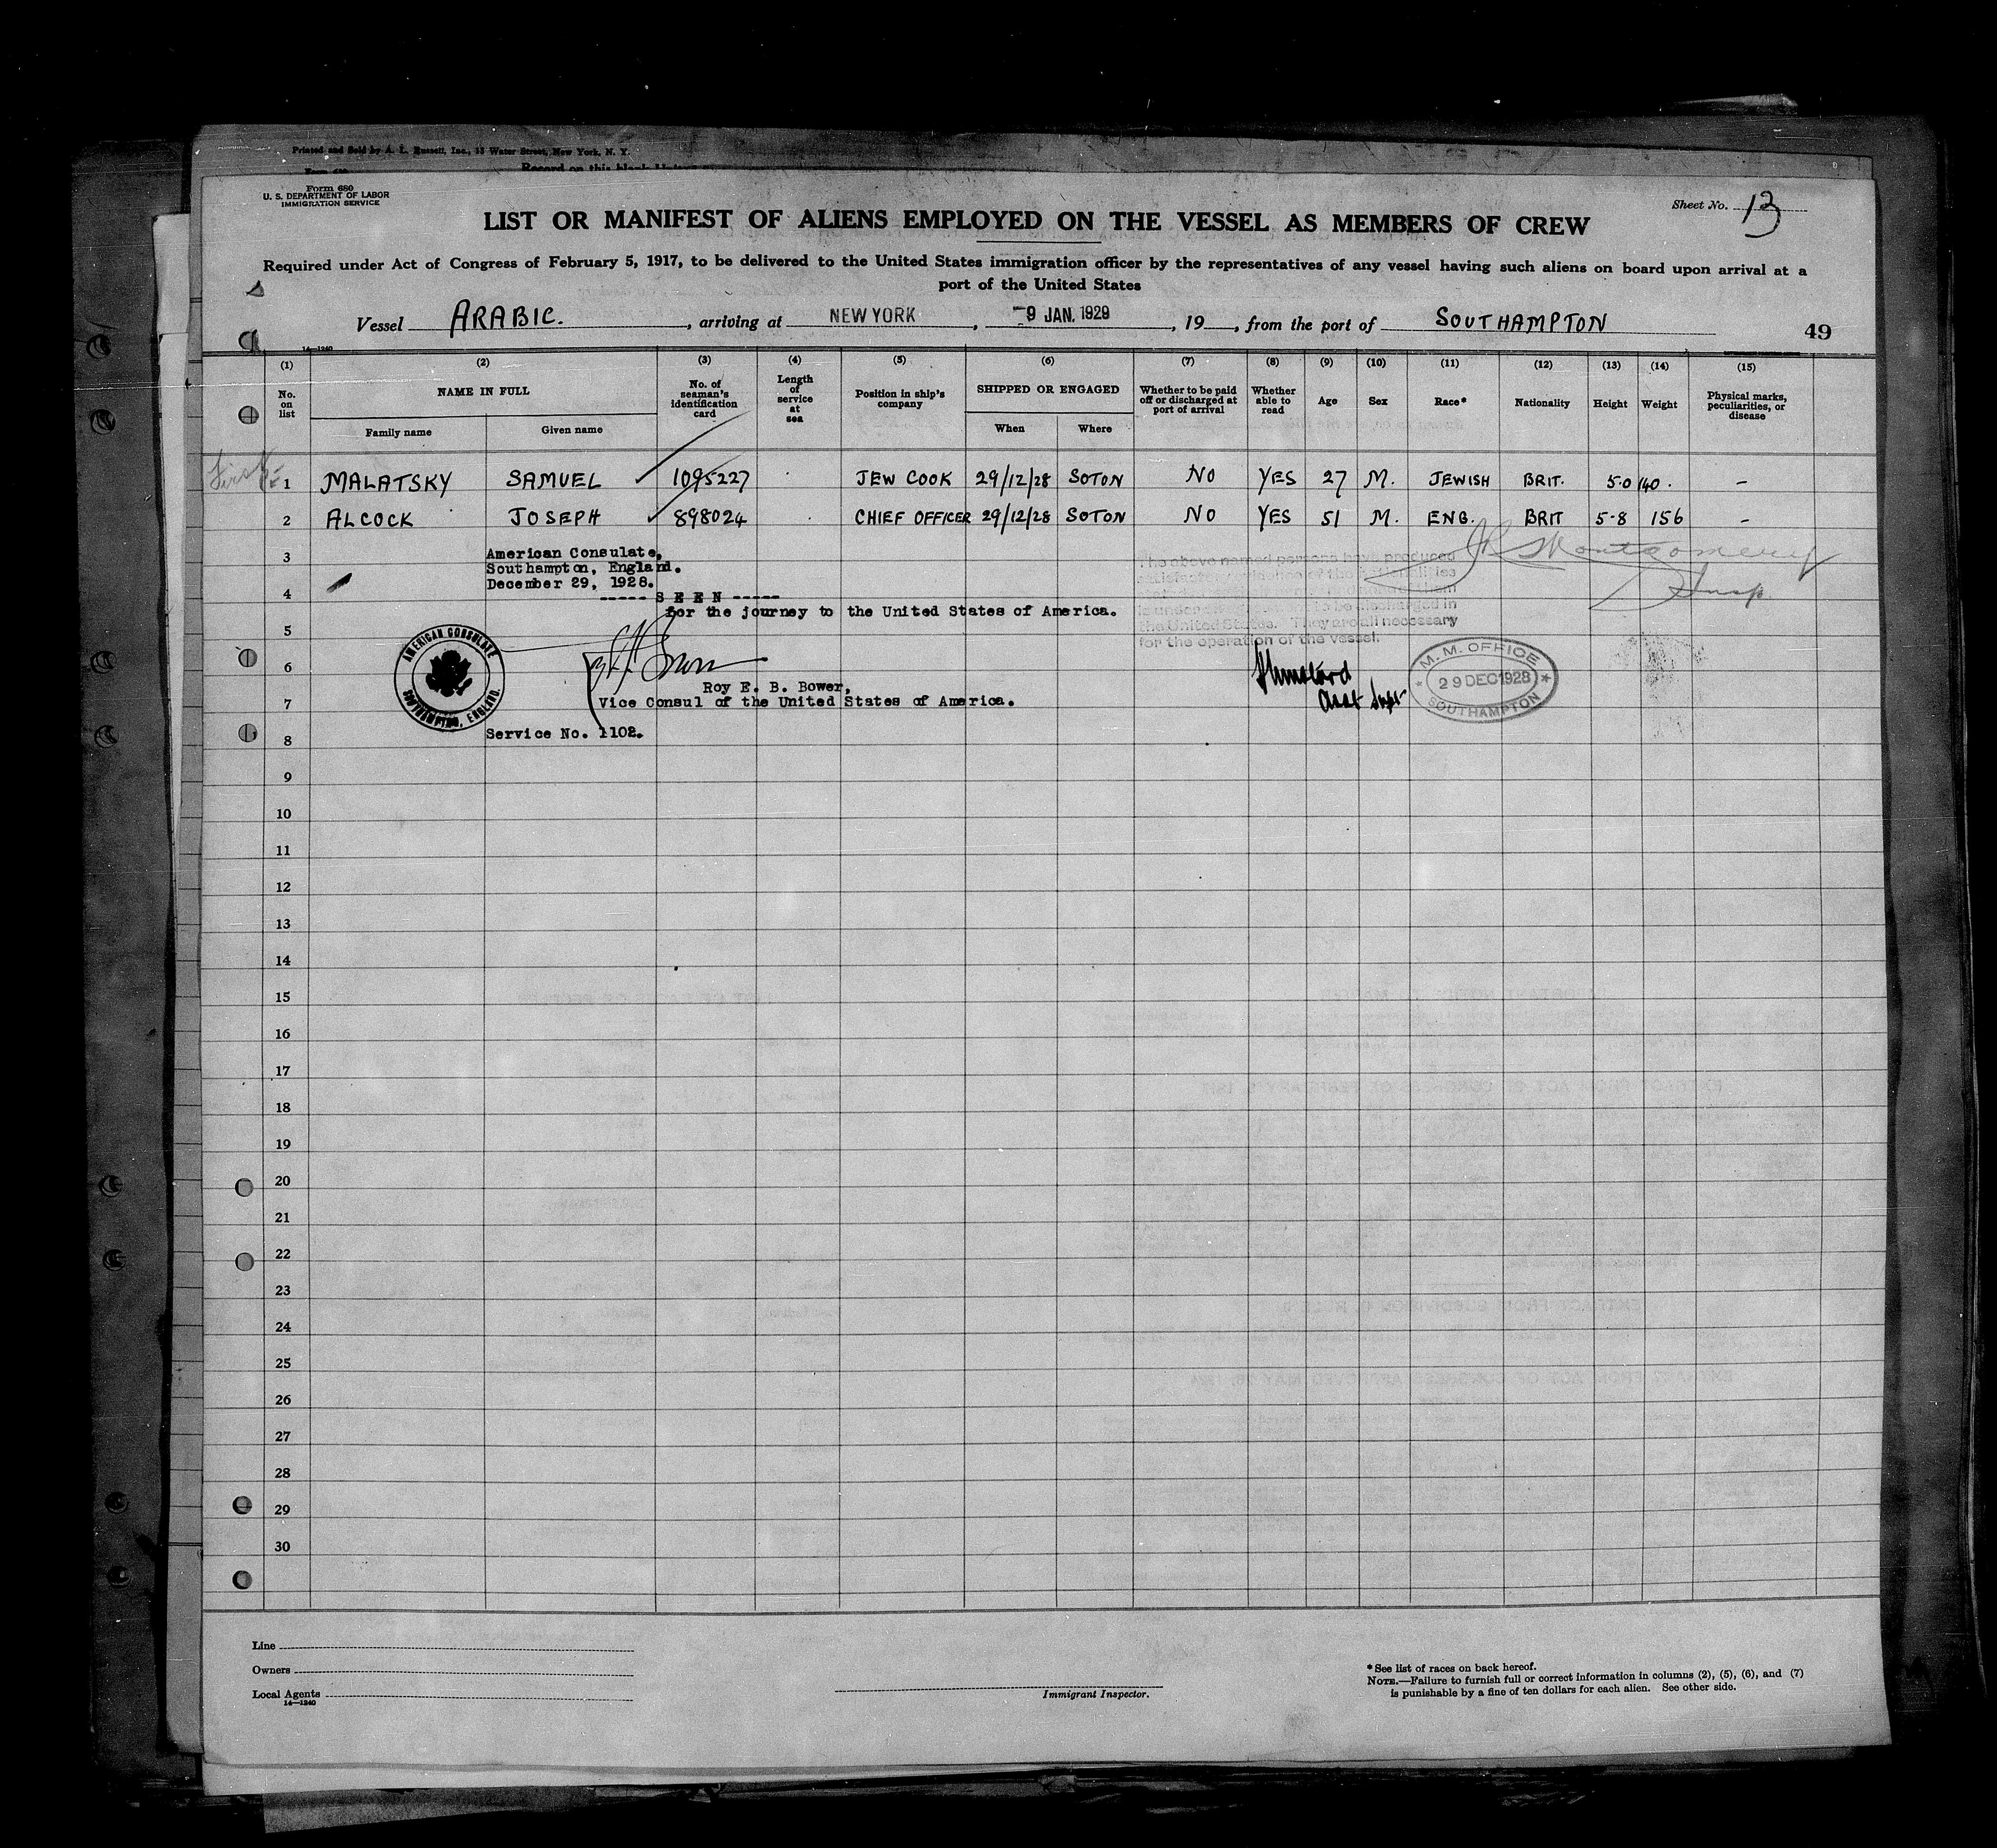 Printed and Sold by A. L. Russell, Inc., 13 Water Street, New York, N. Y.
Record on this blank
Form 680
U. S. DEPARTMENT OF LABOR
IMMIGRATION SERVICE
Sheet No. 13
LIST OR MANIFEST OF ALIENS EMPLOYED ON THE VESSEL AS MEMBERS OF CREW
Required under Act of Congress of February 5, 1917, to be delivered to the United States immigration officer by the representatives of any vessel having such aliens on board upon arrival at a
port of the United States
Vessel ARABIC. , arriving at NEW YORK , -9 JAN. 1929 , 19 , from the port of SOUTHAMPTON
49
14—1240
(1) (2) (3) (4) (5) (6) (7) (8) (9) (10) (11) (12) (13) (14) (15)
No. on list NAME IN FULL No. of seaman's identification card Length of service at sea Position in ship's company SHIPPED OR ENGAGED Whether to be paid off or discharged at port of arrival Whether able to read Age Sex Race* Nationality Height Weight Physical marks, peculiarities, or disease
Family name Given name When Where
First
1 MALATSKY SAMUEL 1095227 JEW COOK 29/12/28 SOTON NO YES 27 M. JEWISH BRIT. 5·0 140. –
2 ALCOCK JOSEPH 898024 CHIEF OFFICER 29/12/28 SOTON NO YES 51 M. ENG. BRIT 5-8 156 –
3
American Consulate,
Southampton, England.
December 29, 1928.
4
----- S E E N -----
for the journey to the United States of America.
The above named persons have produced
to be discharged in
the United States. They are all necessary
for the operation of the vessel.
Montgomery
Insp.
5
AMERICAN CONSULATE
SOUTHAMPTON, ENGLAND.
6
Roy E. B. Bower,
7
Vice Consul of the United States of America.
Asst Supt
M. M. OFFICE
29 DEC 1928
SOUTHAMPTON
Service No. 1102.
8
9
10
11
12
13
14
15
16
17
18
19
20
21
22
23
24
25
26
27
28
29
30
Line
Owners
Local Agents
14—1240
Immigrant Inspector.
* See list of races on back hereof.
NOTE.—Failure to furnish full or correct information in columns (2), (5), (6), and (7)
is punishable by a fine of ten dollars for each alien. See other side.